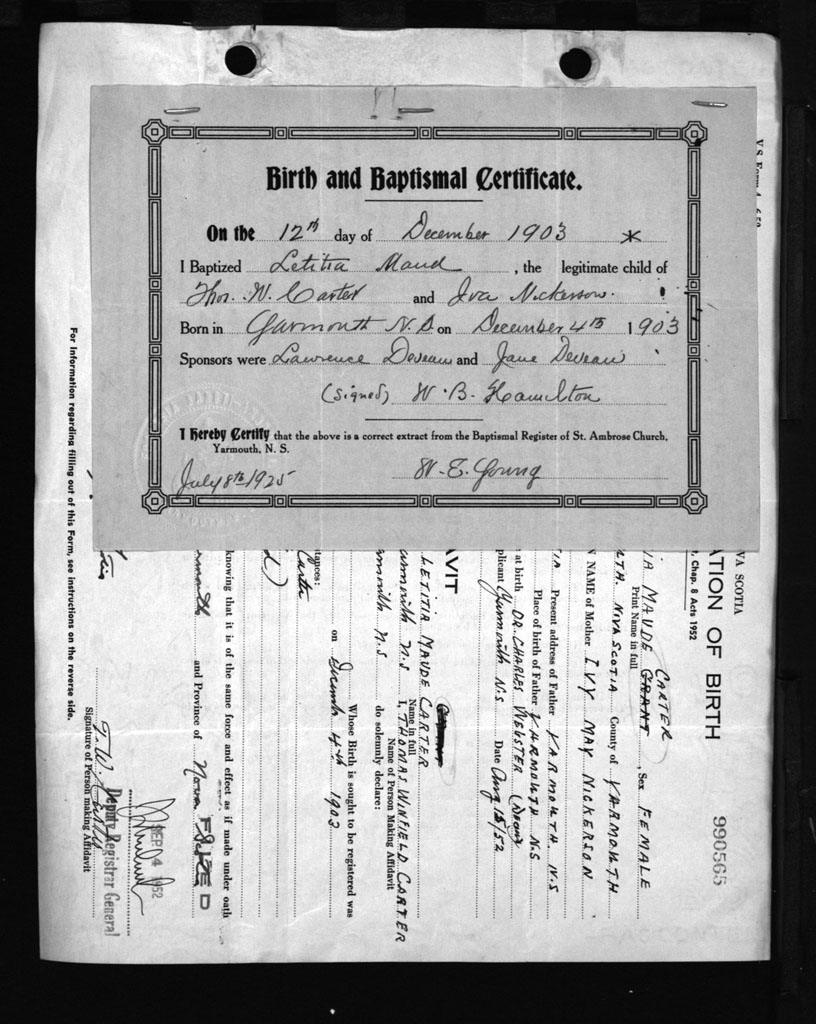 Birth and Baptismal Certificate.
On the 12th day of December 1903 *
I Baptized Letitia Maud , the legitimate child of
Thos. W. Carter and Iva Nickerson.
Born in Yarmouth N.S on December 4th 1903
Sponsors were Lawrence Deveau and Jane Deveau
(signed) W. B. Hamilton
I Hereby Certify that the above is a correct extract from the Baptismal Register of St. Ambrose Church,
Yarmouth, N. S.
July 8th 1925 W. E. Young
VA SCOTIA
ATION OF BIRTH
990565
, Chap. 8 Acts 1952
CARTER
IA MAUDE GRANT , Sex FEMALE
Print Name in full
TH. NOVA SCOTIA County of YARMOUTH
NAME of Mother IVY MAY NICKERSON
IA Present address of Father YARMOUTH N.S
Place of birth of Father YARMOUTH N.S
at birth DR. CHARLES WEBSTER
plicant Yarmouth N.S Date Aug 15/52
AVIT
LETITIA MAUDE CARTER
Name in full
armouth N.S I, THOMAS WINFIELD CARTER
Name of Person Making Affidavit
armouth N.S do solemnly declare:
Whose Birth is sought to be registered was
on December 4th 1903
tances:
Carter
knowing that it is of the same force and effect as if made under oath
armouth and Province of Nova
T. W. Carter
Signature of Person making Affidavit
SEP 4 1952
Deputy Registrar General
For Information regarding filling out of this Form, see instructions on the reverse side.